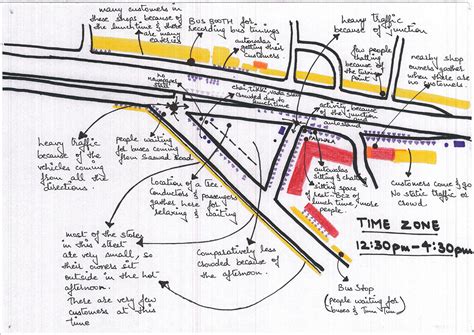 many customers in
these shops because of
the lunchtime & there
are many
eateries
BUS BOOTH for
recording bus timings
autowalas
getting their
customers.
heavy Traffic
because of
junction
few people
chatting
because of
the turning
point
nearby shop
owners gather
when there are
no customers.
no
newspaper
stall
chai, tikki, vada stall
crowded due to
lunchtime
activity because
of the
autostand
heavy Traffic
because of the
vehicles coming
from all the
directions.
people waiting
for buses coming
from Saswad Road
Location of a tree.
Conductors & passengers
gather here for
relaxing & waiting
autowalas
sitting & chatting
sitting space
rest. Bcoz of
lunch time more
people.
customers come & go
No static traffic or
crowd
most of the stores
in this street
are very small, so
their owners sit
outside in the hot
afternoon.
There are very few
customers at this
Time
Comparatively less
crowded because of
the afternoon.
Bus Stop
(people waiting for
buses & Tum Tum)
TIME ZONE
12:30pm - 4:30pm